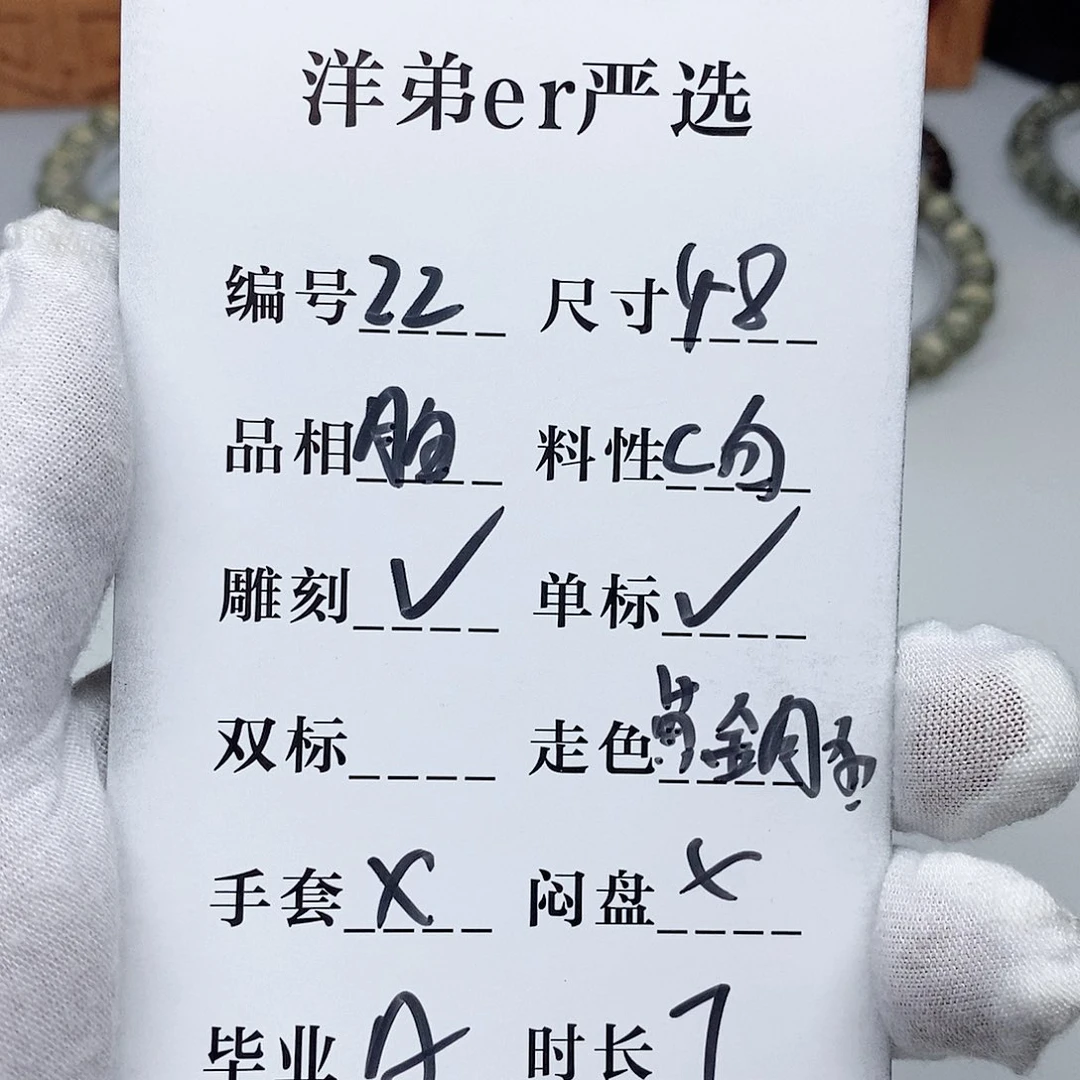 洋弟er严选
编号 22 尺寸 48
品相 料性 C匀
雕刻 ✓ 单标 ✓
双标 走色
手套 X 闷盘 X
毕业 A 时长 7